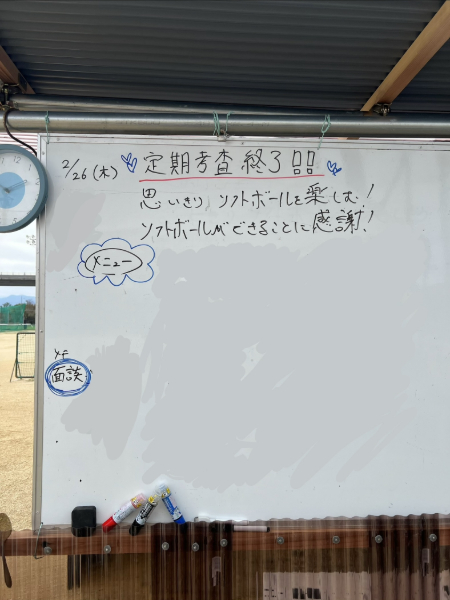 2/26(木) 定期考査終了
思いきりソフトボールを楽しむ!
ソフトボールができることに感謝!
メニュー
面談